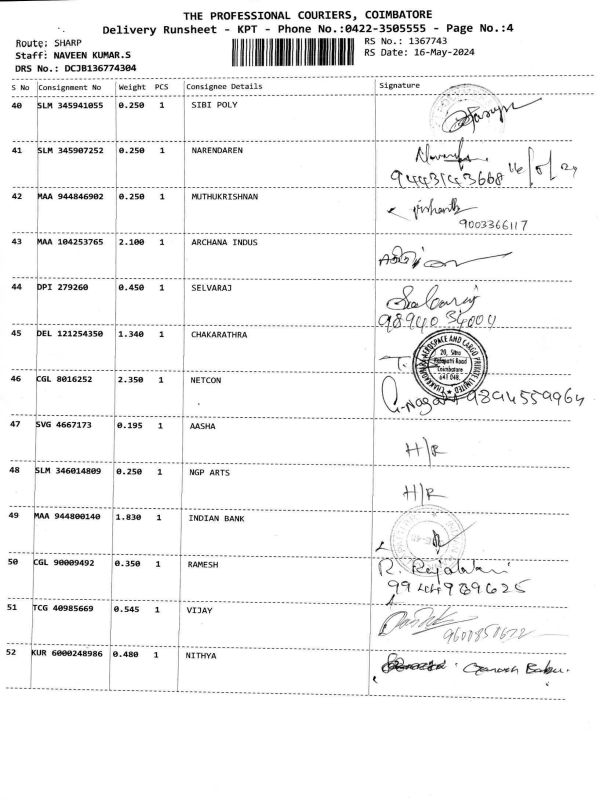 THE PROFESSIONAL COURIERS, COIMBATORE
Delivery Runsheet - KPT - Phone No.:0422-3505555 - Page No.:4
Route: SHARP
RS No.: 1367743
Staff: NAVEEN KUMAR.S
RS Date: 16-May-2024
DRS No.: DCJB136774304
S No Consignment No Weight PCS Consignee Details Signature
40 SLM 345941055 0.250 1 SIBI POLY
41 SLM 345907252 0.250 1 NARENDAREN
9443143668 16/5/24
42 MAA 944846902 0.250 1 MUTHUKRISHNAN
9003366117
43 MAA 104253765 2.100 1 ARCHANA INDUS
44 DPI 279260 0.450 1 SELVARAJ
Selvaraj
98940 34004
45 DEL 121254350 1.340 1 CHAKARATHRA
T.
46 CGL 8016252 2.350 1 NETCON
9894559964
47 SVG 4667173 0.195 1 AASHA
H/R
48 SLM 346014809 0.250 1 NGP ARTS
H/R
49 MAA 944800140 1.830 1 INDIAN BANK
50 CGL 90009492 0.350 1 RAMESH
9944989625
51 TCG 40985669 0.545 1 VIJAY
52 KUR 6000248986 0.480 1 NITHYA
Ganesh Babu.